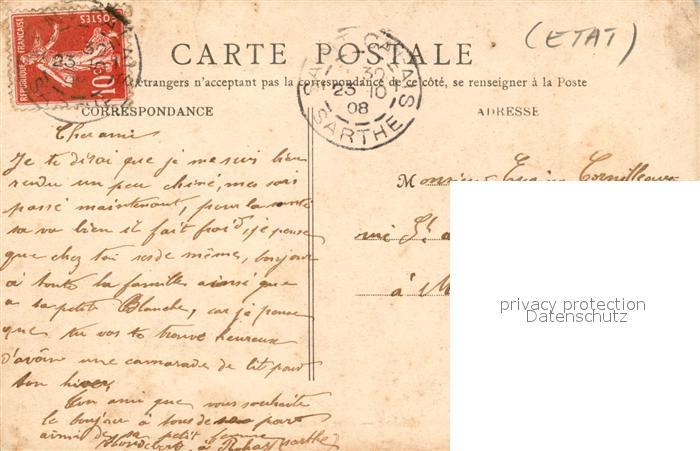 (ETAT)
CARTE POSTALE
étrangers n'acceptant pas la correspondance de ce côté, se renseigner à la Poste
CORRESPONDANCE
ADRESSE
POSTES
REPUBLIQUE FRANÇAISE
10
23 10
08
SARTHE
Cher ami
Je te dirai que je me suis bien
rendu un peu mes
passé maintenant, pour la santé
sa va bien il fait froid, je pense
que chez toi de mêmes, bonjour
à toute la familles ainsi que
a ta petite Blanche, car je pense
que tu vas te trouve heureux
d'avoire une camarade de lit pour
ton hiver,
Ton ami que vous souhaite
le bonjour à tous de part
ainsi de sa petit femme
à Sarthe
Monsieur
à
privacy protection
Datenschutz